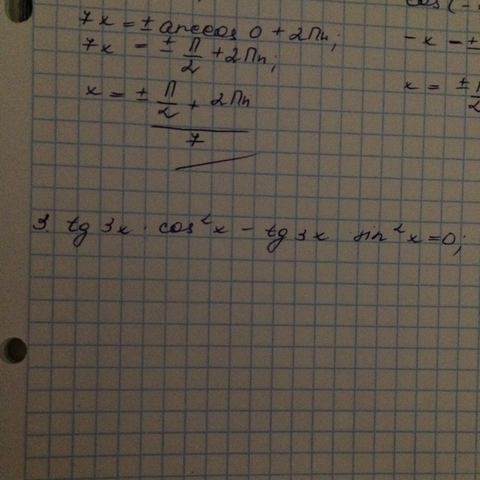 7x = ± arccos 0 + 2Пn;
7x = ± П/2 + 2Пn;
x = ± П/2 + 2Пn
7
cos(-
-x = ±
x = ± П/2
3. tg 3x · cos²x - tg 3x sin²x = 0;